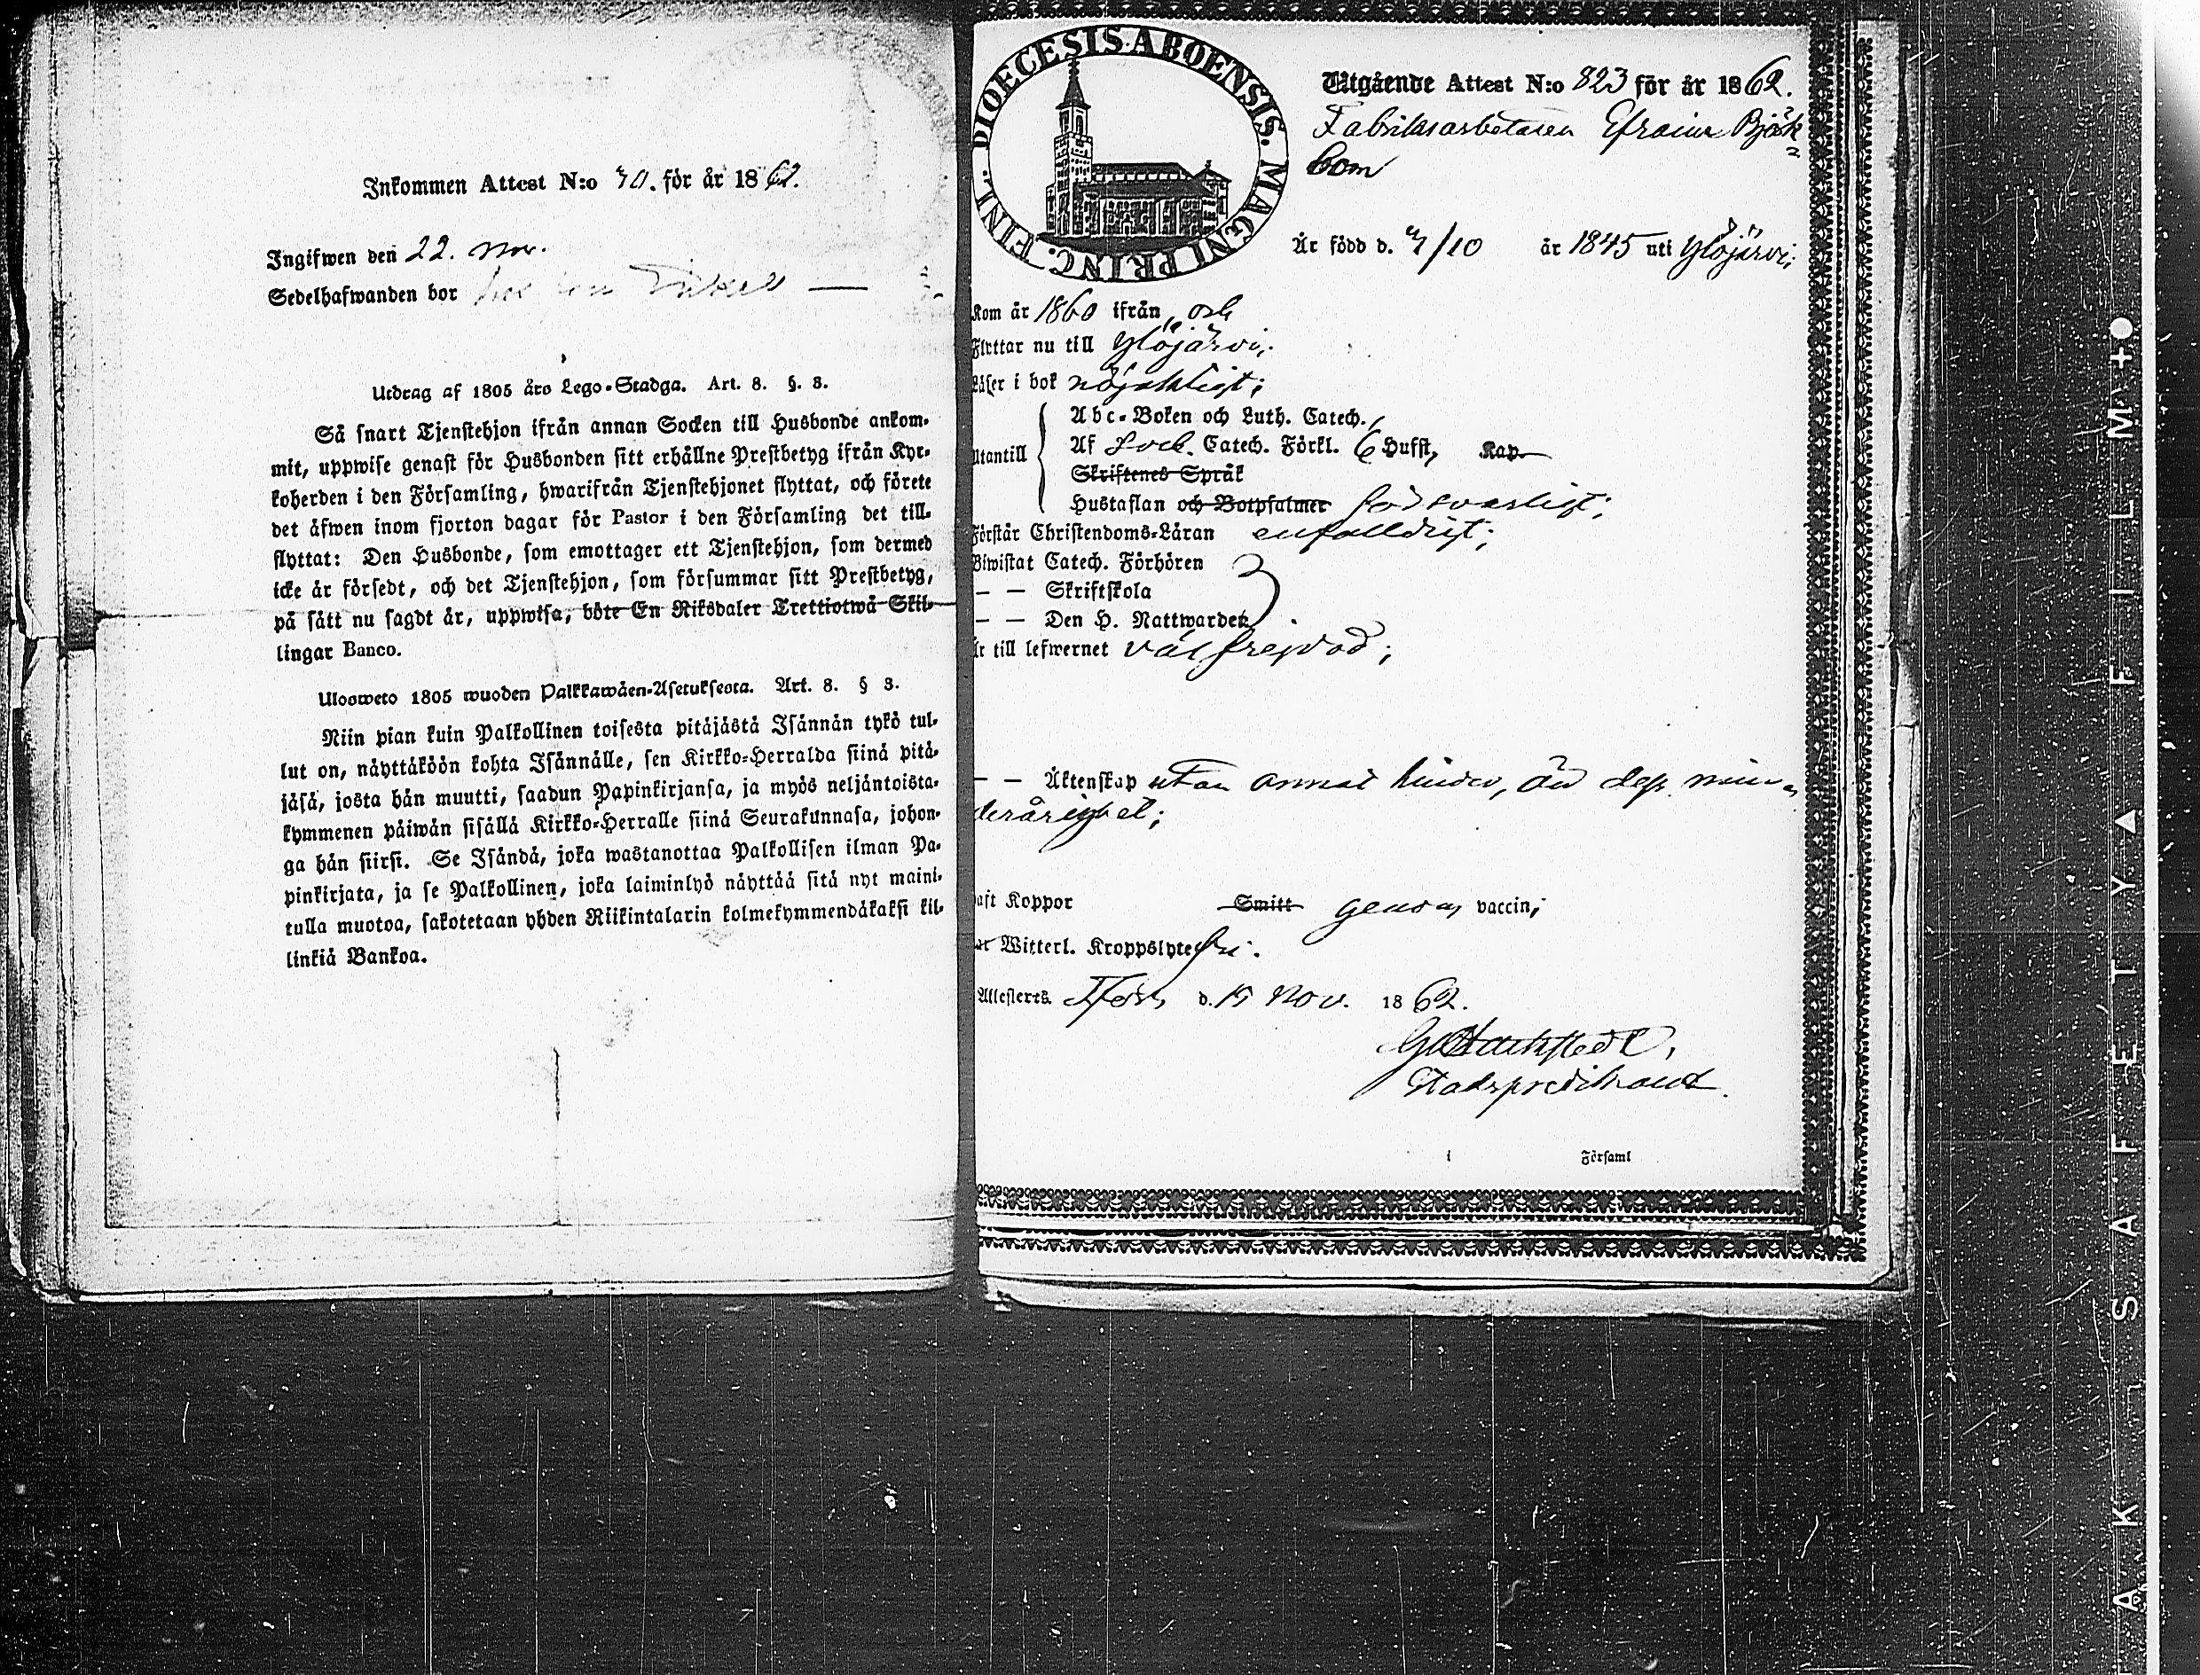 Inkommen Attest N:o 70. för år 1862.
Ingifwen den 22. Nov.
Sedelhafwanden bor
Utdrag af 1805 års Lego-Stadga. Art. 8. §. 3.
Så snart Tjenstehjon ifrån annan Socken till Husbonde ankom-
mit, uppwise genast för Husbonden sitt erhållne Prestbetyg ifrån Kyr-
koherden i den Församling, hwarifrån Tjenstehjonet flyttat, och förete
det äfwen inom fjorton dagar för Pastor i den Församling det till-
flyttat: Den Husbonde, som emottager ett Tjenstehjon, som dermed
icke är försedt, och det Tjenstehjon, som försummar sitt Prestbetyg,
på sätt nu sagdt är, uppwisa, böte En Riksdaler Trettiotwå Skil-
lingar Banco.
Ulosweto 1805 wuoden Palkkawäen-Asetuksesta. Art. 8. § 3.
Niin pian kuin Palkollinen toisesta pitäjästä Isännän tykö tul-
lut on, näyttäköön kohta Isännälle, sen Kirkko-Herralda siinä pitä-
jäsä, josta hän muutti, saadun Papinkirjansa, ja myös neljäntoista-
kymmenen päiwän sisällä Kirkko-Herralle siinä Seurakunnasa, johon-
ga hän siirsi. Se Isändä, joka wastanottaa Palkollisen ilman Pa-
pinkirjata, ja se Palkollinen, joka laiminlyö näyttää sitä nyt maini-
tulla muotoa, sakotetaan yhden Riikintalarin kolmekymmendäkaksi kil-
linkiä Bankoa.
DIOECESIS ABOENSIS. MAGNI PRINC. FINL.
Utgående Attest N:o 823 för år 1862.
Fabriksarbetaren Efraim Björk=
bom
Är född d. 7/10 år 1845 uti Ylöjärvi;
Kom år 1860 ifrån och
Flyttar nu till Ylöjärvi;
Läser i bok nöjaktligt;
Utantill
Abc-Boken och Luth. Catech.,
Af Catech. Förkl. 6 Hufst, Kap.
Skriftenes Språk
Hustaflan och Botpsalmer försvarligt;
Förstår Christendoms-Läran enfalldigt;
Biwistat Catech. Förhören
— — Skriftskola
— — Den H. Nattwarden
är till lefwernet välfrejdad;
— — Äktenskap utan annat hinder, än dess min-
derårighet;
haft Koppor Smitt genom vaccin;
ar Witterl. Kroppslyte fri.
Attesteras T:fors d. 15 Nov. 1862.
Stadspredikant.
i Församl
AKSAFETYAFILM